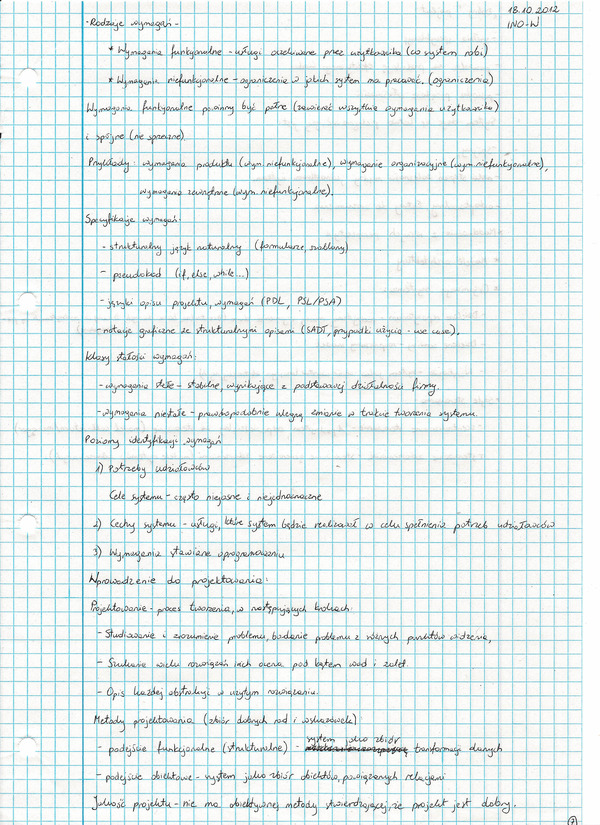 18.10.2012
INO-W
- Rodzaje wymagań -
* Wymagania funkcjonalne - usługi oczekiwane przez użytkownika (co system robi)
* Wymagania niefunkcjonalne - ograniczenia w jakich system ma pracować. (ograniczenia)
Wymagania funkcjonalne powinny być pełne (zawierać wszystkie wymagania użytkownika)
i spójne (nie sprzeczne).
Przykłady: wymagania produktu (wym. niefunkcjonalne), wymaganie organizacyjne (wym. niefunkcjonalne),
wymagania zewnętrzne (wym. niefunkcjonalne).
Specyfikacje wymagań:
- strukturalny język naturalny (formularze, szablony)
- pseudokod (if, else, while...)
- języki opisu projektu, wymagań (PDL, PSL/PSA)
- notacje graficzne ze strukturalnymi opisami (SADT, przypadki użycia - use case).
Klasy stałości wymagań:
- wymagania stałe - stabilne, wynikające z podstawowej działalności firmy.
- wymagania niestałe - prawdopodobnie ulegną zmianie w trakcie tworzenia systemu.
Poziomy identyfikacji wymagań
1) Potrzeby udziałowców
Cele systemu - często niejasne i niejednoznaczne
2) Cechy systemu - usługi, które system będzie realizował w celu spełnienia potrzeb udziałowców
3) Wymagania stawiane oprogramowaniu
Wprowadzenie do projektowania:
Projektowanie - proces tworzenia, w następujących krokach:
- Studiowanie i zrozumienie problemu, badanie problemu z różnych punktów widzenia,
- Szukanie wielu rozwiązań i ich ocena pod kątem wad i zalet.
- Opis każdej abstrakcji w użytym rozwiązaniu.
Metody projektowania (zbiór dobrych rad i wskazówek)
- podejście funkcjonalne (strukturalne) - system jako zbiór transformacji danych
- podejście obiektowe - system jako zbiór obiektów, powiązanych relacjami
Jakość projektu - nie ma obiektywnej metody stwierdzającej, że projekt jest dobry.